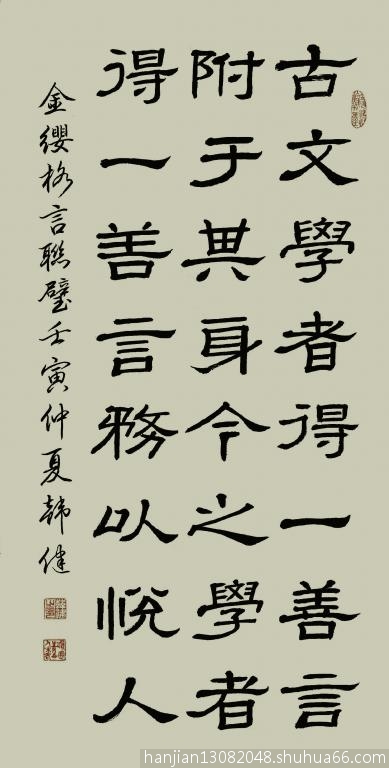 古文學者得一善言
附于其身今之學者
得一善言務以悅人
金纓格言聯璧壬寅仲夏韓健
hanjian13082048.shuhua66.com